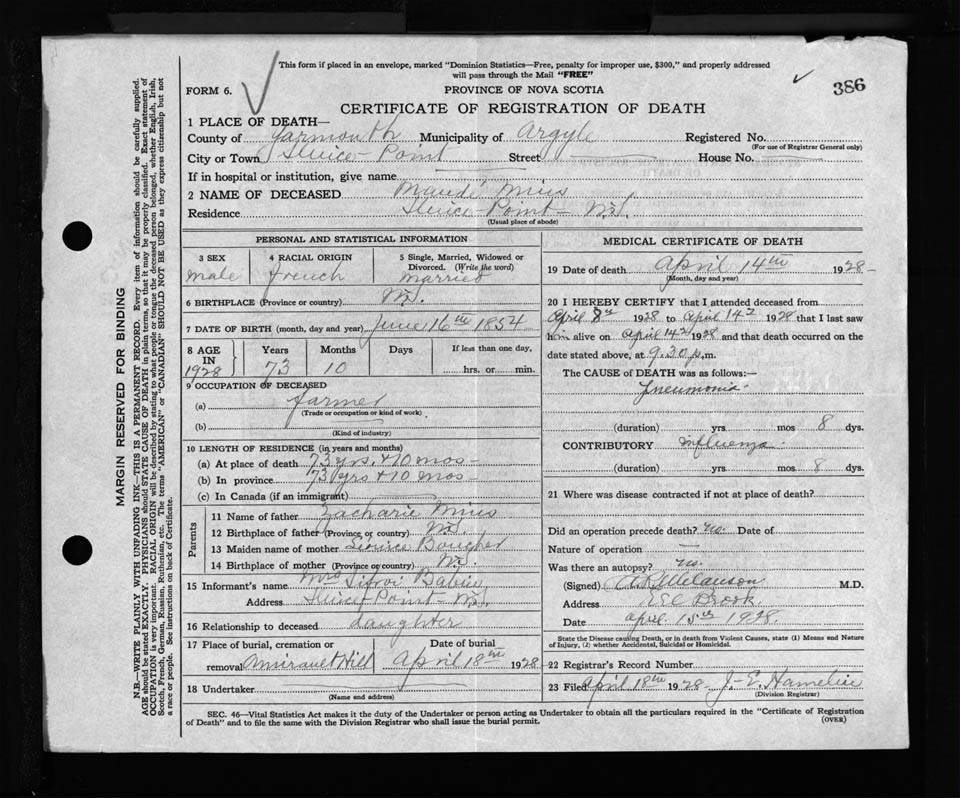 This form if placed in an envelope, marked "Dominion Statistics—Free, penalty for improper use, $300," and properly addressed
will pass through the Mail "FREE"
386
FORM 6.
PROVINCE OF NOVA SCOTIA
CERTIFICATE OF REGISTRATION OF DEATH
1 PLACE OF DEATH—
County of Yarmouth Municipality of Argyle Registered No.
(For use of Registrar General only)
City or Town Sluice-Point Street House No.
If in hospital or institution, give name
2 NAME OF DECEASED Mandé Mius
Residence Sluice-Point- N.S.
(Usual place of abode)
PERSONAL AND STATISTICAL INFORMATION
3 SEX
male
4 RACIAL ORIGIN
French
5 Single, Married, Widowed or
Divorced. (Write the word)
Married
6 BIRTHPLACE (Province or country) N.S.
7 DATE OF BIRTH (month, day and year) June 16th 1854
8 AGE
IN
1928
Years
73
Months
10
Days
If less than one day,
hrs. or min.
9 OCCUPATION OF DECEASED
(a) farmer
(Trade or occupation or kind of work)
(b)
(Kind of industry)
10 LENGTH OF RESIDENCE (in years and months)
(a) At place of death 73 yrs. + 10 mos-
(b) In province 73 yrs + 10 mos-
(c) In Canada (if an immigrant)
Parents
11 Name of father Zacharie Mius
12 Birthplace of father (Province or country) N.S.
13 Maiden name of mother Boucher
14 Birthplace of mother (Province or country) N.S.
15 Informant's name Mrs Babin
Address Sluice-Point- N.S.
16 Relationship to deceased daughter
17 Place of burial, cremation or
removal Amirault Hill
Date of burial
April 18th 1928
18 Undertaker
(Name and address)
MEDICAL CERTIFICATE OF DEATH
19 Date of death April 14th 1928-
(Month, day and year)
20 I HEREBY CERTIFY that I attended deceased from
April 8 1928 to April 14 1928 that I last saw
him alive on April 14 1928 and that death occurred on the
date stated above, at 9.30 p.m.
The CAUSE of DEATH was as follows:—
Pneumonia.
(duration) yrs mos 8 dys.
CONTRIBUTORY Influenza.
(duration) yrs mos 8 dys.
21 Where was disease contracted if not at place of death?
Did an operation precede death? no. Date of
Nature of operation
Was there an autopsy? no.
(Signed) Melanson M.D.
Address Eel Brook
Date April 15th 1928.
State the Disease causing Death, or in death from Violent Causes, state (1) Means and Nature
of Injury, (2) whether Accidental, Suicidal or Homicidal.
22 Registrar's Record Number
23 Filed April 18th 1928- J-E. Hamelin
(Division Registrar)
SEC. 46—Vital Statistics Act makes it the duty of the Undertaker or person acting as Undertaker to obtain all the particulars required in the "Certificate of Registration
of Death" and to file the same with the Division Registrar who shall issue the burial permit.
(OVER)
MARGIN RESERVED FOR BINDING
N.B.—WRITE PLAINLY WITH UNFADING INK—THIS IS A PERMANENT RECORD. Every item of information should be carefully supplied.
AGE should be stated EXACTLY. PHYSICIANS should STATE CAUSE OF DEATH in plain terms, so that it may be properly classified. Exact statement of
OCCUPATION is very important. RACIAL ORIGIN will be described by stating to what people or tongue the deceased person belonged, whether English, Irish,
Scotch, French, German, Russian, Ruthenian, etc. The terms "AMERICAN" or "CANADIAN" SHOULD NOT BE USED as they express citizenship but not
a race or people. See instructions on back of Certificate.